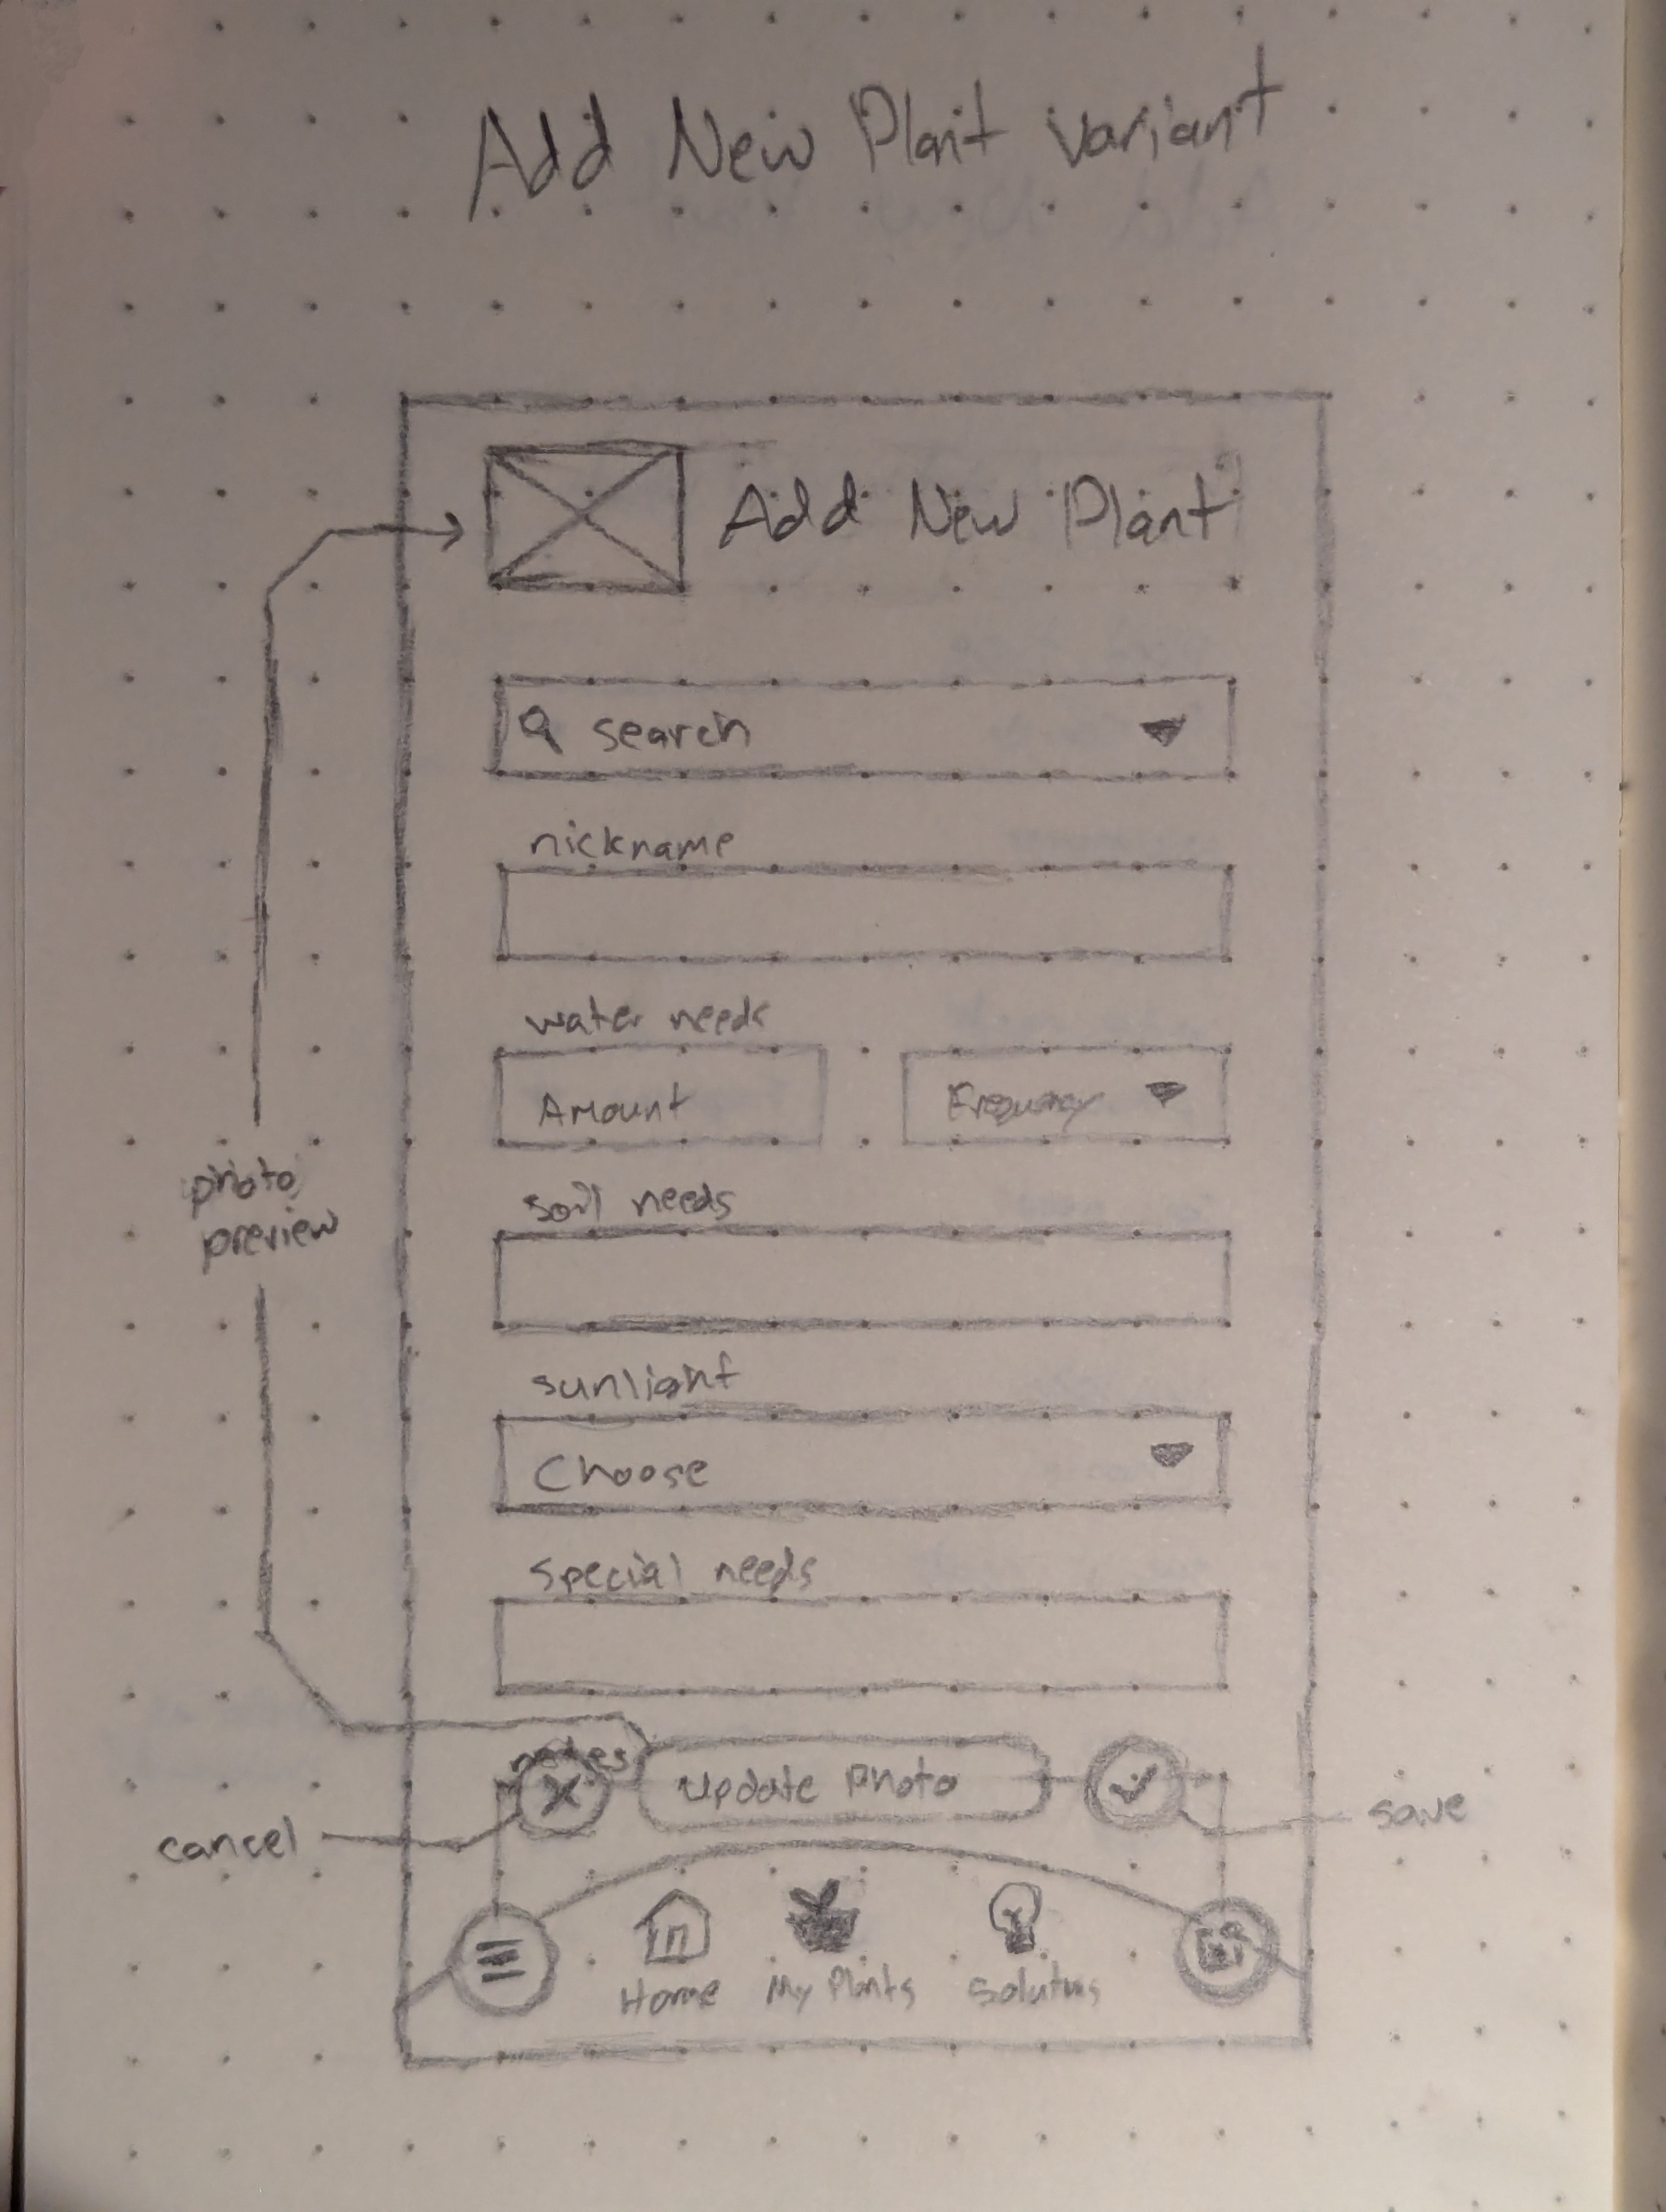 Add New Plant Variant
Add New Plant
search
nickname
water needs
Amount
Frequency
photo
preview
soil needs
sunlight
Choose
special needs
notes
Update Photo
cancel
save
Home
My Plants